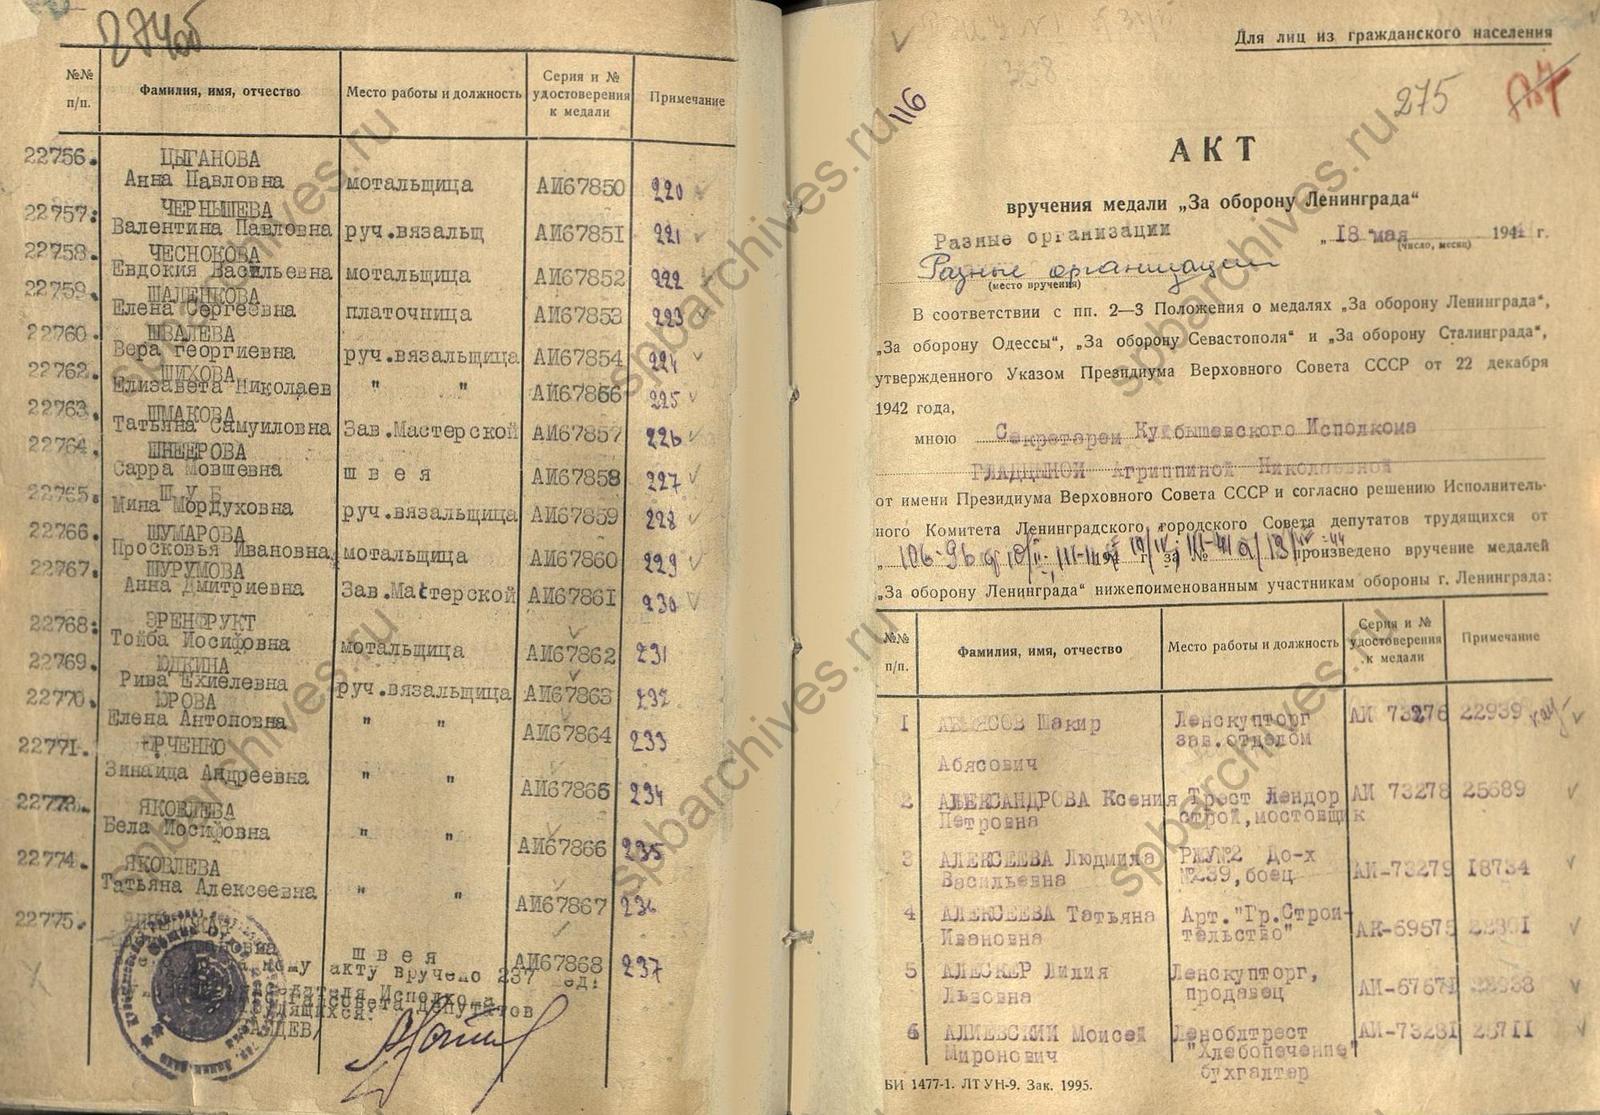 274об
№№ п/п.
Фамилия, имя, отчество
Место работы и должность
Серия и № удостоверения к медали
Примечание
22756. ЦЫГАНОВА
Анна Павловна мотальщица АИ67850 220
22757. ЧЕРНЫШЕВА
Валентина Павловна руч.вязальщ АИ67851 221
22758. ЧЕСНОКОВА
Евдокия Васильевна мотальщица АИ67852 222
22759. ШАЛЕНКОВА
Елена Сергеевна платочница АИ67853 223
22760. ШВАЛЕВА
Вера георгиевна руч.вязальщица АИ67854 224
22762. ШИХОВА
Елизавета Николаев " " АИ67856 225
22763. ШМАКОВА
Татьяна Самуиловна Зав.Мастерской АИ67857 226
22764. ШНЕЕРОВА
Сарра Мовшевна швея АИ67858 227
22765. ШУБ
Мина Мордуховна руч.вязальщица АИ67859 228
22766. ШУМАРОВА
Просковья Ивановна мотальщица АИ67860 229
22767. ШУРУМОВА
Анна Дмитриевна Зав.Мастерской АИ67861 230
22768. ЭРЕНФРУКТ
Тойба Иосифовна мотальщица АИ67862 231
22769. ЮДКИНА
Рива Ехиелевна руч.вязальщица АИ67863 232
22770. ЮРОВА
Елена Антоновна " " АИ67864 233
22771. ЮРЧЕНКО
Зинаида Андреевна " " АИ67865 234
22773. ЯКОВЛЕВА
Бела Иосифовна " " АИ67866 235
22774. ЯКОВЛЕВА
Татьяна Алексеевна " " АИ67867 236
22775.
швея АИ67868 237
акту вручено 237 ед.
Исполкома
депутатов
трудящихся
Для лиц из гражданского населения
116
275
АКТ
вручения медали „За оборону Ленинграда“
Разные организации „18 мая 194 г.
(число, месяц)
Разные организации
(место вручения)
В соответствии с пп. 2—3 Положения о медалях „За оборону Ленинграда“,
„За оборону Одессы“, „За оборону Севастополя“ и „За оборону Сталинграда“,
утвержденного Указом Президиума Верховного Совета СССР от 22 декабря
1942 года,
мною Секретарем Куйбышевского Исполкома
ГЛАДЦЫНОЙ Агриппиной Николаевной
от имени Президиума Верховного Совета СССР и согласно решению Исполнитель-
ного Комитета Ленинградского городского Совета депутатов трудящихся от
произведено вручение медалей
„За оборону Ленинграда“ нижепоименованным участникам обороны г. Ленинграда:
№№ п/п.
Фамилия, имя, отчество
Место работы и должность
Серия и № удостоверения к медали
Примечание
1 АБЯСОВ Шакир Ленскупторг АИ 73276 22939
зав.отделом
Абясович
2 АЛЕКСАНДРОВА Ксения Трест Лендор АИ 73278 25689
Петровна строй,мостовщик
3 АЛЕКСЕЕВА Людмила РЖУ№2 До-х АИ-73279 18734
Васильевна №239,боец
4 АЛЕКСЕЕВА Татьяна Арт."Гр.Строи-
Ивановна тельство" АК-69575
5 АЛЕСКЕР Лидия Ленскупторг,
Львовна продавец
6 АЛИЕВСКИЙ Моисей Леноблтрест АИ-73281 25711
Миронович "Хлебопечение"
бухгалтер
БИ 1477-1. ЛТ УН-9. Зак. 1995.
spbarchives.ru